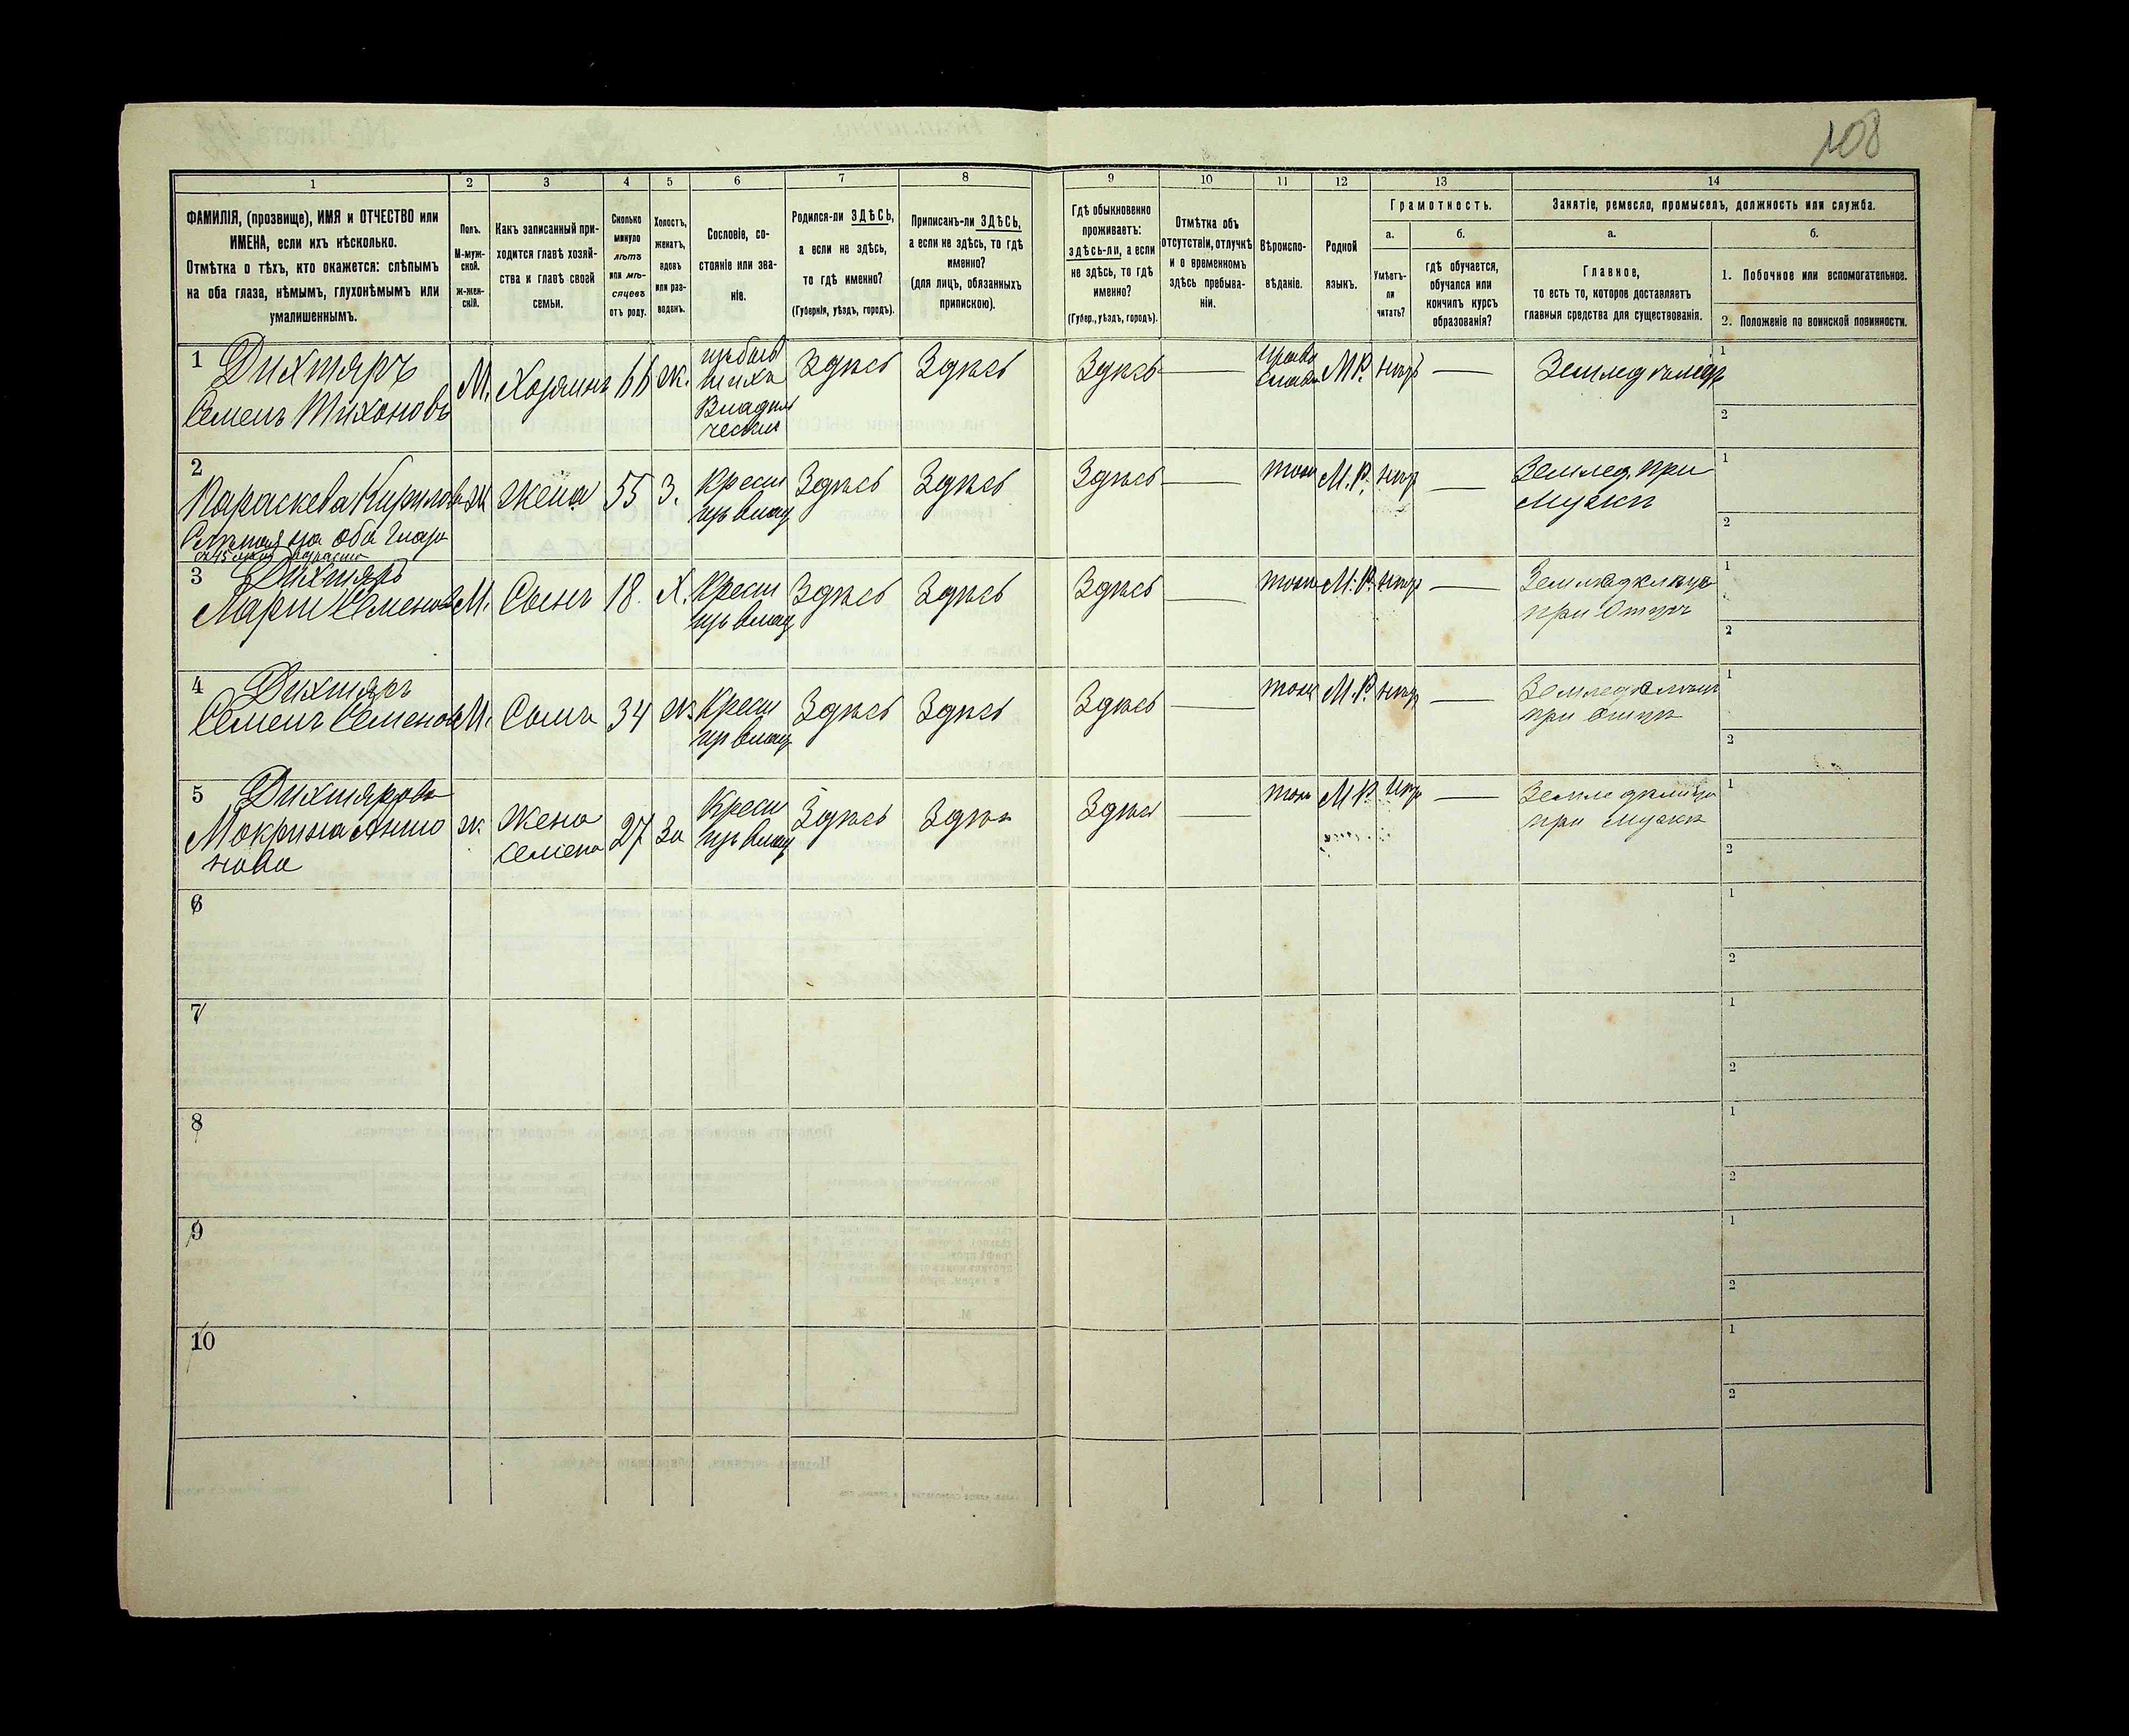 108
1 2 3 4 5 6 7 8 9 10 11 12 13 14
ФАМИЛІЯ, (прозвище), ИМЯ и ОТЧЕСТВО или
ИМЕНА, если ихъ нѣсколько.
Отмѣтка о тѣхъ, кто окажется: слѣпымъ
на оба глаза, нѣмымъ, глухонѣмымъ или
умалишеннымъ.
Полъ.
М-муж-
ской.
Ж-жен-
скій.
Какъ записанный при-
ходится главѣ хозяй-
ства и главѣ своей
семьи.
Сколько
минуло
лѣтъ
или мѣ-
сяцевъ
отъ роду.
Холостъ,
женатъ,
вдовъ
или раз-
веденъ.
Сословіе, со-
стояніе или зва-
ніе.
Родился-ли ЗДѢСЬ,
а если не здѣсь,
то гдѣ именно?
(Губернія, уѣздъ, городъ).
Приписанъ-ли ЗДѢСЬ,
а если не здѣсь, то гдѣ
именно?
(для лицъ, обязанныхъ
припискою).
Гдѣ обыкновенно
проживаетъ:
ЗДѢСЬ-ЛИ, а если
не здѣсь, то гдѣ
именно?
(Губер., уѣздъ, городъ).
Отмѣтка объ
отсутствіи, отлучкѣ
и о временномъ
здѣсь пребыва-
ніи.
Вѣроиспо-
вѣданіе.
Родной
языкъ.
Грамотность.
а.
Умѣетъ-
ли
читать?
б.
гдѣ обучается,
обучался или
кончилъ курсъ
образованія?
Занятіе, ремесло, промыселъ, должность или служба.
а.
Главное,
то есть то, которое доставляетъ
главныя средства для существованія.
б.
1. Побочное или вспомогательное.
2. Положеніе по воинской повинности.
1 Дихтяръ
Семенъ Тихоновъ
М. Хозяинъ 66 ж.
изъ быв
Владѣль
ческихъ
Здѣсь Здѣсь Здѣсь —
право
слав
М.Р. нѣтъ — Земледѣлец
1
2
2
Параскева Кирилов
Слѣпая на оба глаза
ж жена 55 З.
Крест
изъ влад
Здѣсь Здѣсь Здѣсь — тож М.Р. нѣт —
Землед. при
мужѣ
1
2
3 Дихтяръ
Семенов
М. Сынъ 18. Х.
Крест
изъ влад
Здѣсь Здѣсь Здѣсь — тож М.Р. нѣт —
при отцѣ
1
2
4 Дихтяръ
Семенъ Семенов
М. Сынъ 34 ж.
Крест
изъ влад
Здѣсь Здѣсь Здѣсь — тож М.Р. нѣт —
при отцѣ
1
2
5 Дихтярова
Мокрина Анто
нова
ж. Жена
Семена
27 За
Крест
изъ влад
Здѣсь Здѣсь Здѣсь — тож М.Р. нѣт —
при мужѣ
1
2
6
1
2
7
1
2
8
1
2
9
1
2
10
1
2